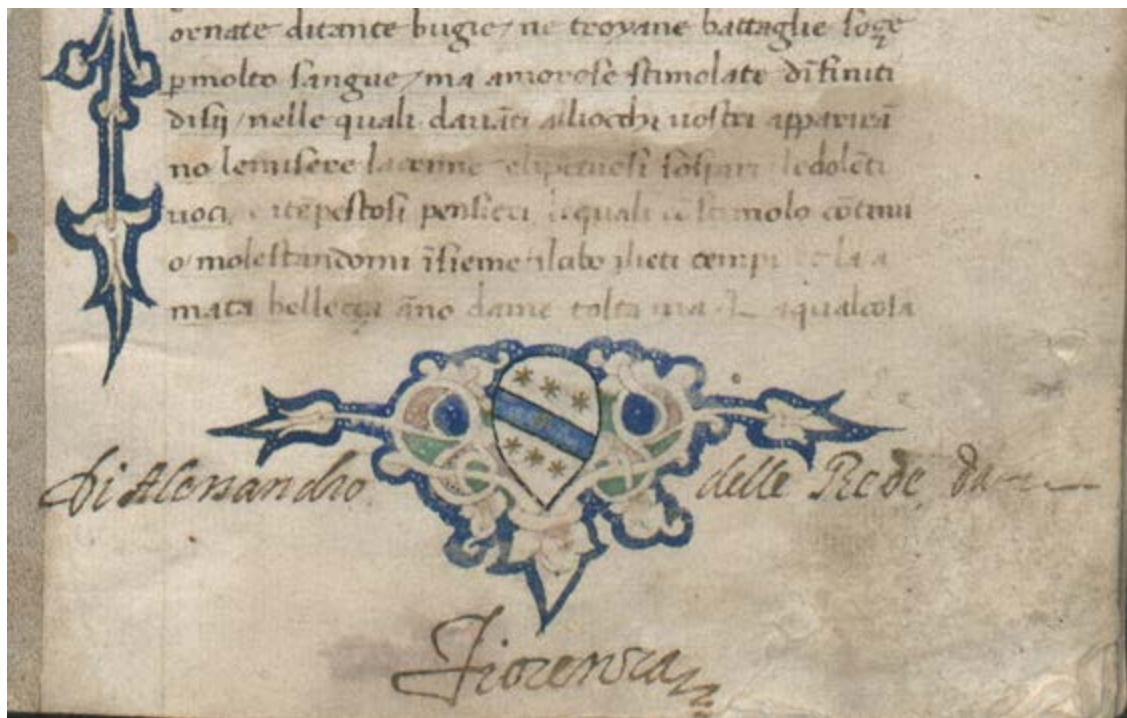 ornate ditante bugie / ne troyane battaglie soze
p̱molto sangue / ma amorose stimolate dīfiniti
disij / nelle quali davāti alliocchi uostri apparirā
no lemisere lacrime elipetuosi sospiri ledolēti
uoci e itēpestosi pensieri iquali cō stimolo cōtinu
o molestandomi īsieme ilabo ilieti tempi
mata bellecça āno dame tolta ma. L aqualcosa
di Alessandro delle Rede da
Fiorenza